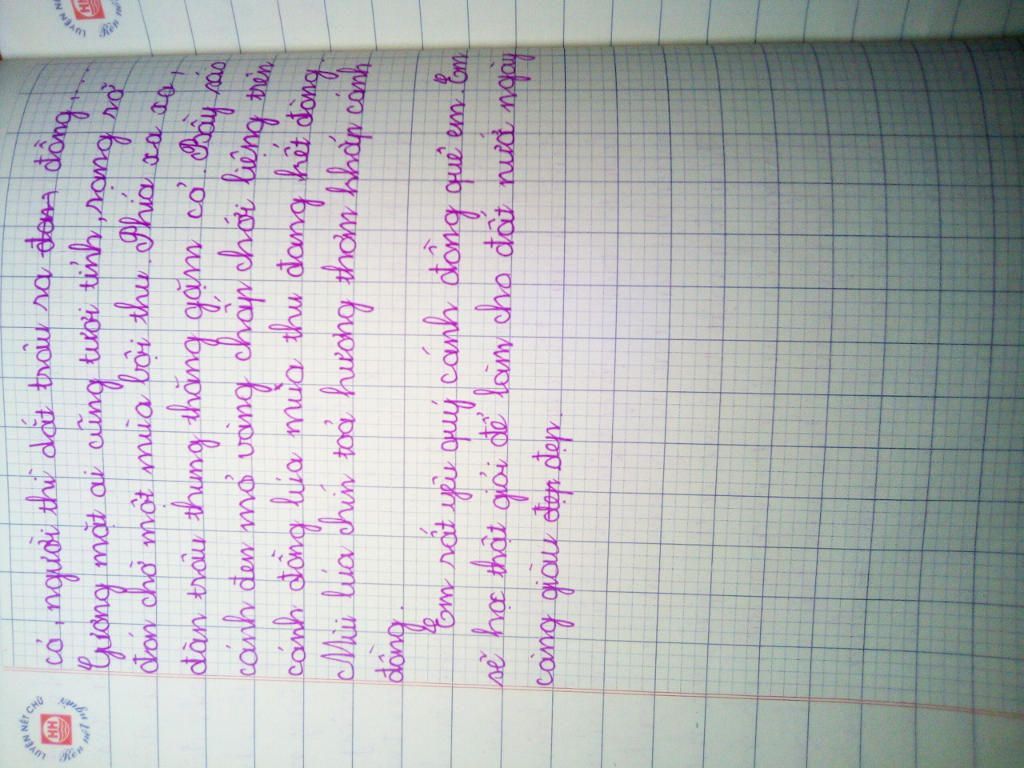 cỏ, người thì dắt trâu ra đon, đồng,...
Gương mặt ai cũng tươi tỉnh, rạng rỡ
đón chờ một mùa bội thu. Phía xa xa,
đàn trâu thung thăng gặm cỏ. Bầy sáo
cánh đen mỏ vàng chấp chới liệng trên
cánh đồng lúa mùa thu đang hết đòng.
Mùi lúa chín toả hương thơm khắp cánh
đồng.
Em rất yêu quý cánh đồng quê em. Em
sẽ học thật giỏi để làm cho đất nước ngày
càng giàu đẹp đẹp.
LUYỆN NÉT CHỮ
HH
Rèn nết người
LUYỆN NÉ
HH
Rèn nế